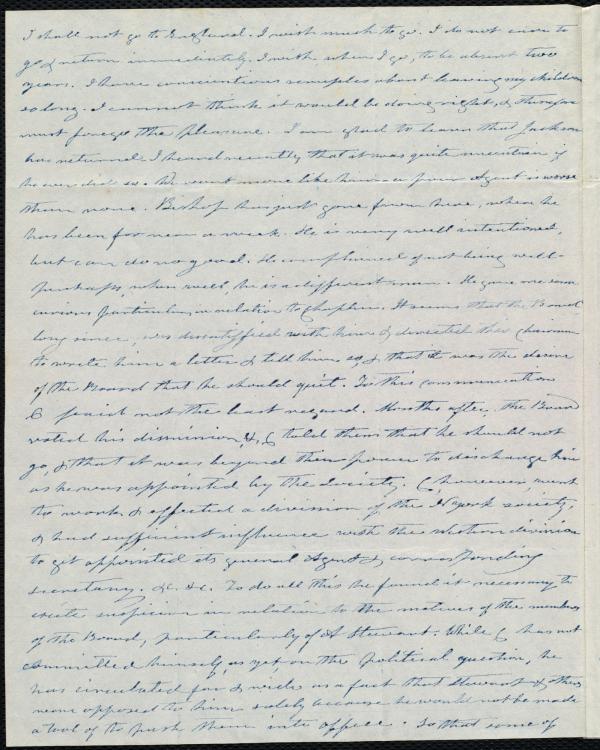 I shall not go to England. I wish much to go. I do not care to
go & return immediately. I wish when I go, to be absent two
years. I have conscientious scruples about leaving my children
so long. I cannot think it would be doing right, & therefore
must forego the pleasure. I am glad to learn that Jackson
has returned. I heard recently that it was quite uncertain if
he ever did so. We want more like him - a poor Agent is worse
than none. Bishop has just gone from here, when he
has been for near a week. He is very well intentioned,
but can do no good. He complained of not being well -
perhaps, when well, he is a different man. He gave me some
curious particulars in relation to Chaplin. It seems that the Board
long since, was dissatisfied with him & directed their Chairman
to write him a letter & tell him so, & that it was the desire
of the Board that he should quit. To this communication
C paid not the least regard. Months after, the Board
voted his dismission, &, C told them that he should not
go, & that it was beyond their power to discharge him
as he was appointed by the Society. C, however, went
to work & effected a division of the N York society,
& had sufficient influence with the western division
to get appointed its general Agent & corresponding
secretary. &c. &c. To do all this he found it necessary to
create suspicion in relation to the motives of the members
of the Board, particularly of A Stewart. While C has not
committed himself, as yet on the political question, he
has circulated far & wide as a fact that Stewart & others
were opposed to him solely because he would not be made
a tool of to push them into office. So that some of